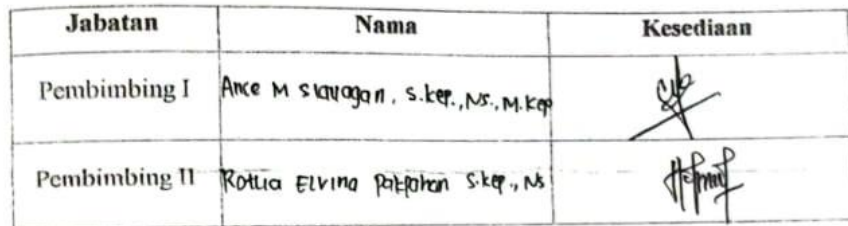 Jabatan Nama Kesediaan
Pembimbing I Ance M Siavagan, S.kep., Ns., M.Kep
Pembimbing II Rotua Elvina Pakpahan S.kep., Ns